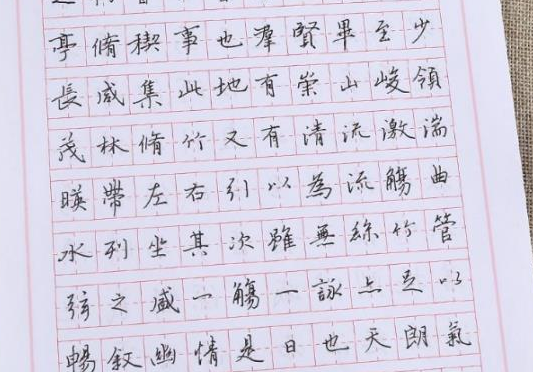 亭脩稧事也羣賢畢至少
長咸集此地有崇山峻領
茂林脩竹又有清流激湍
暎帶左右引以為流觴曲
水列坐其次雖無絲竹管
弦之盛一觴一詠亦足以
暢敘幽情是日也天朗氣